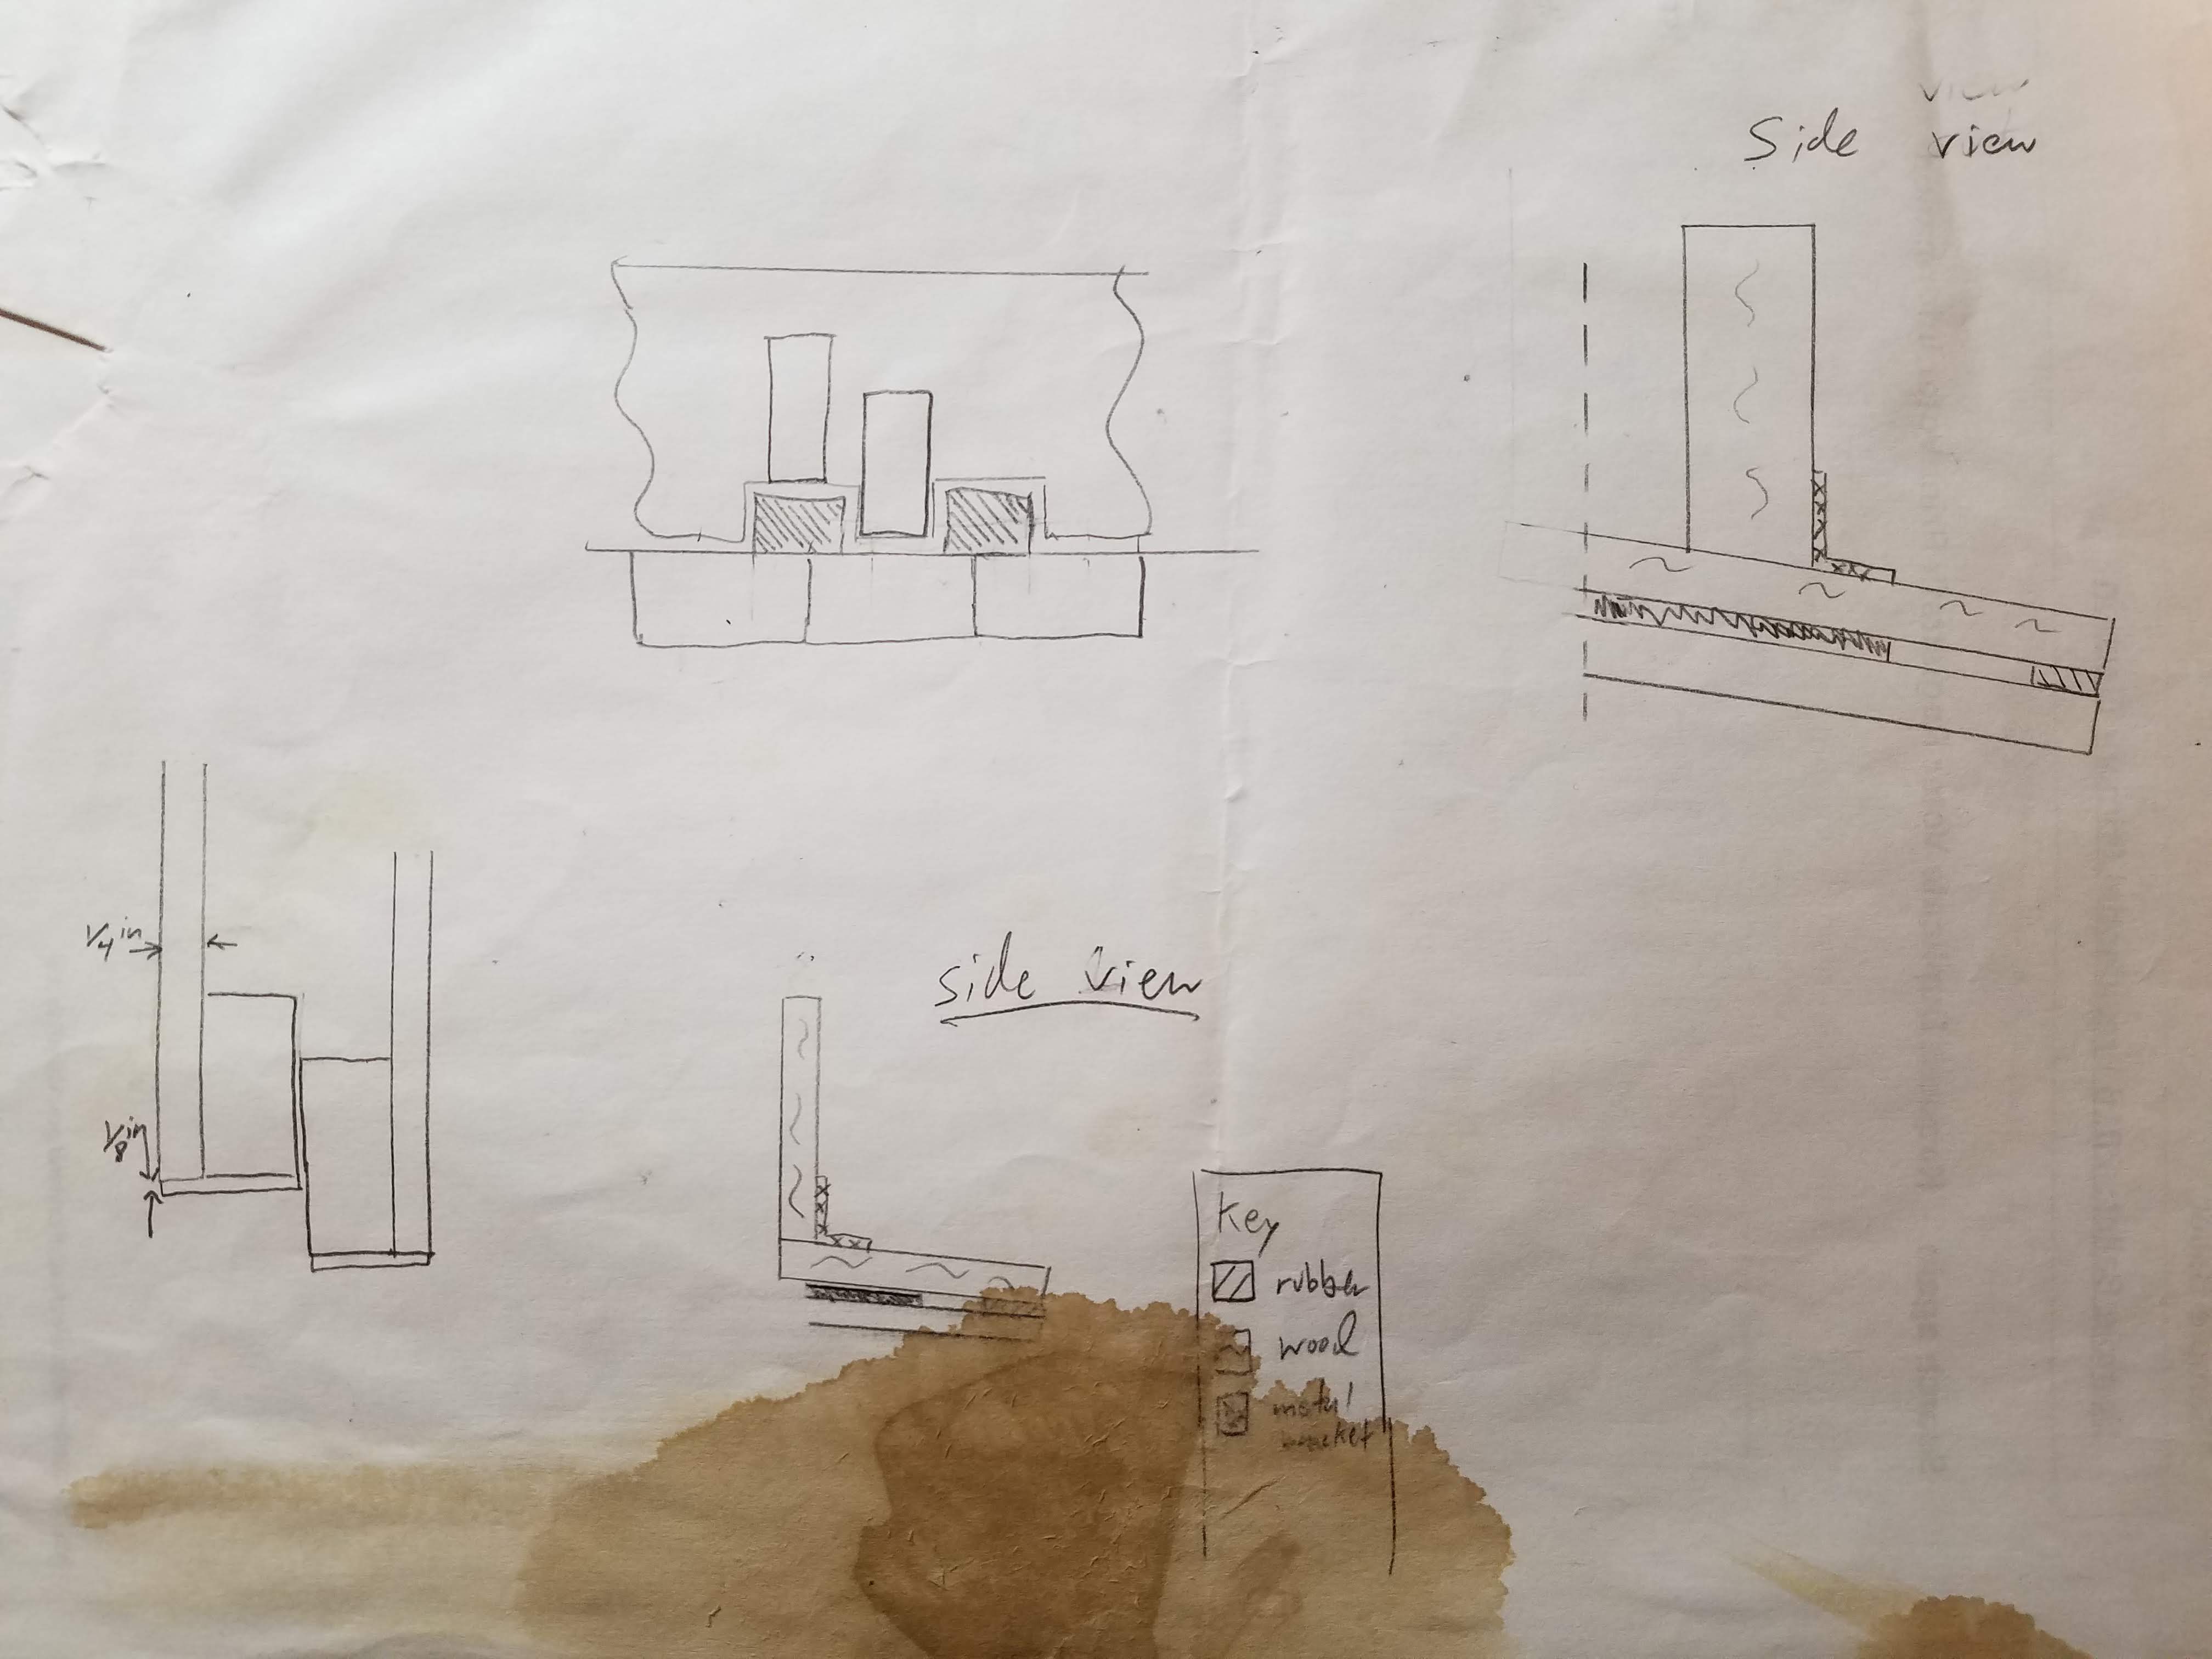 view
Side view
1/4 in
1/8 in
side view
Key
rubber
wood
metal
bracket